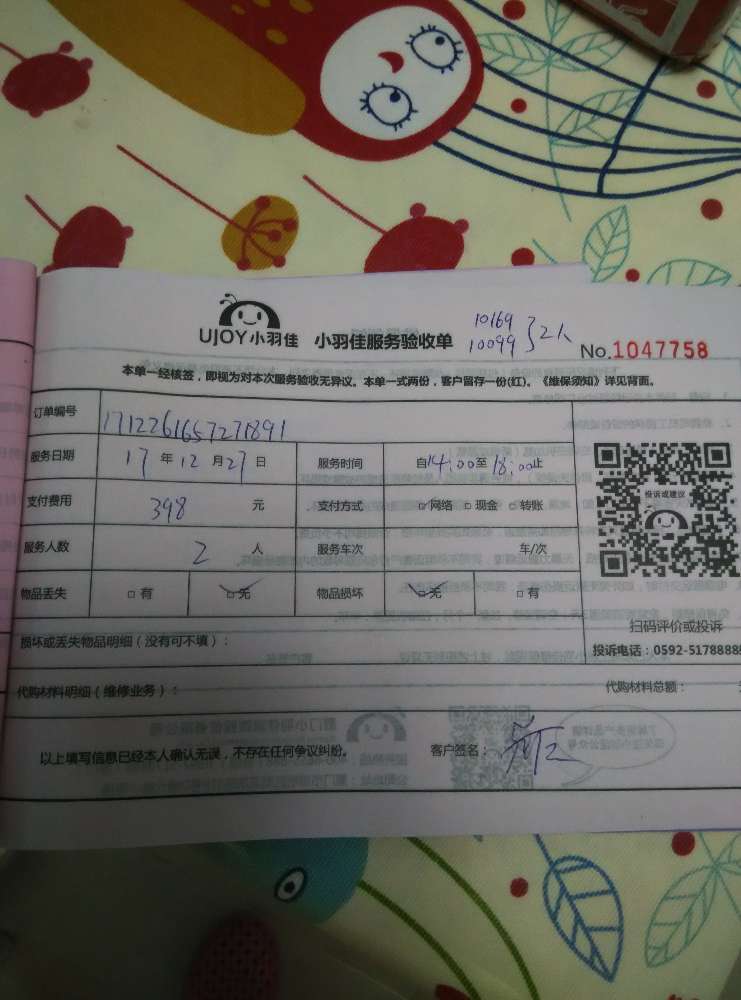 UJOY小羽佳 小羽佳服务验收单 10169 10099 }2人 No.1047758
本单一经核签，即视为对本次服务验收无异议。本单一式两份，客户留存一份(红)。《维保须知》详见背面。
订单编号 1712261657271891
服务日期 17年12月27日 服务时间 自14:00至18:00止
投诉或建议
支付费用 398 元 支付方式 □网络 □现金 □转账
服务人数 2 人 服务车次 车/次
物品丢失 □有 □无 物品损坏 □无 □有
扫码评价或投诉
损坏或丢失物品明细（没有可不填）：
投诉电话：0592-5178888
代购材料明细（维修业务）： 代购材料总额：
以上填写信息已经本人确认无误，不存在任何争议纠纷。 客户签名：